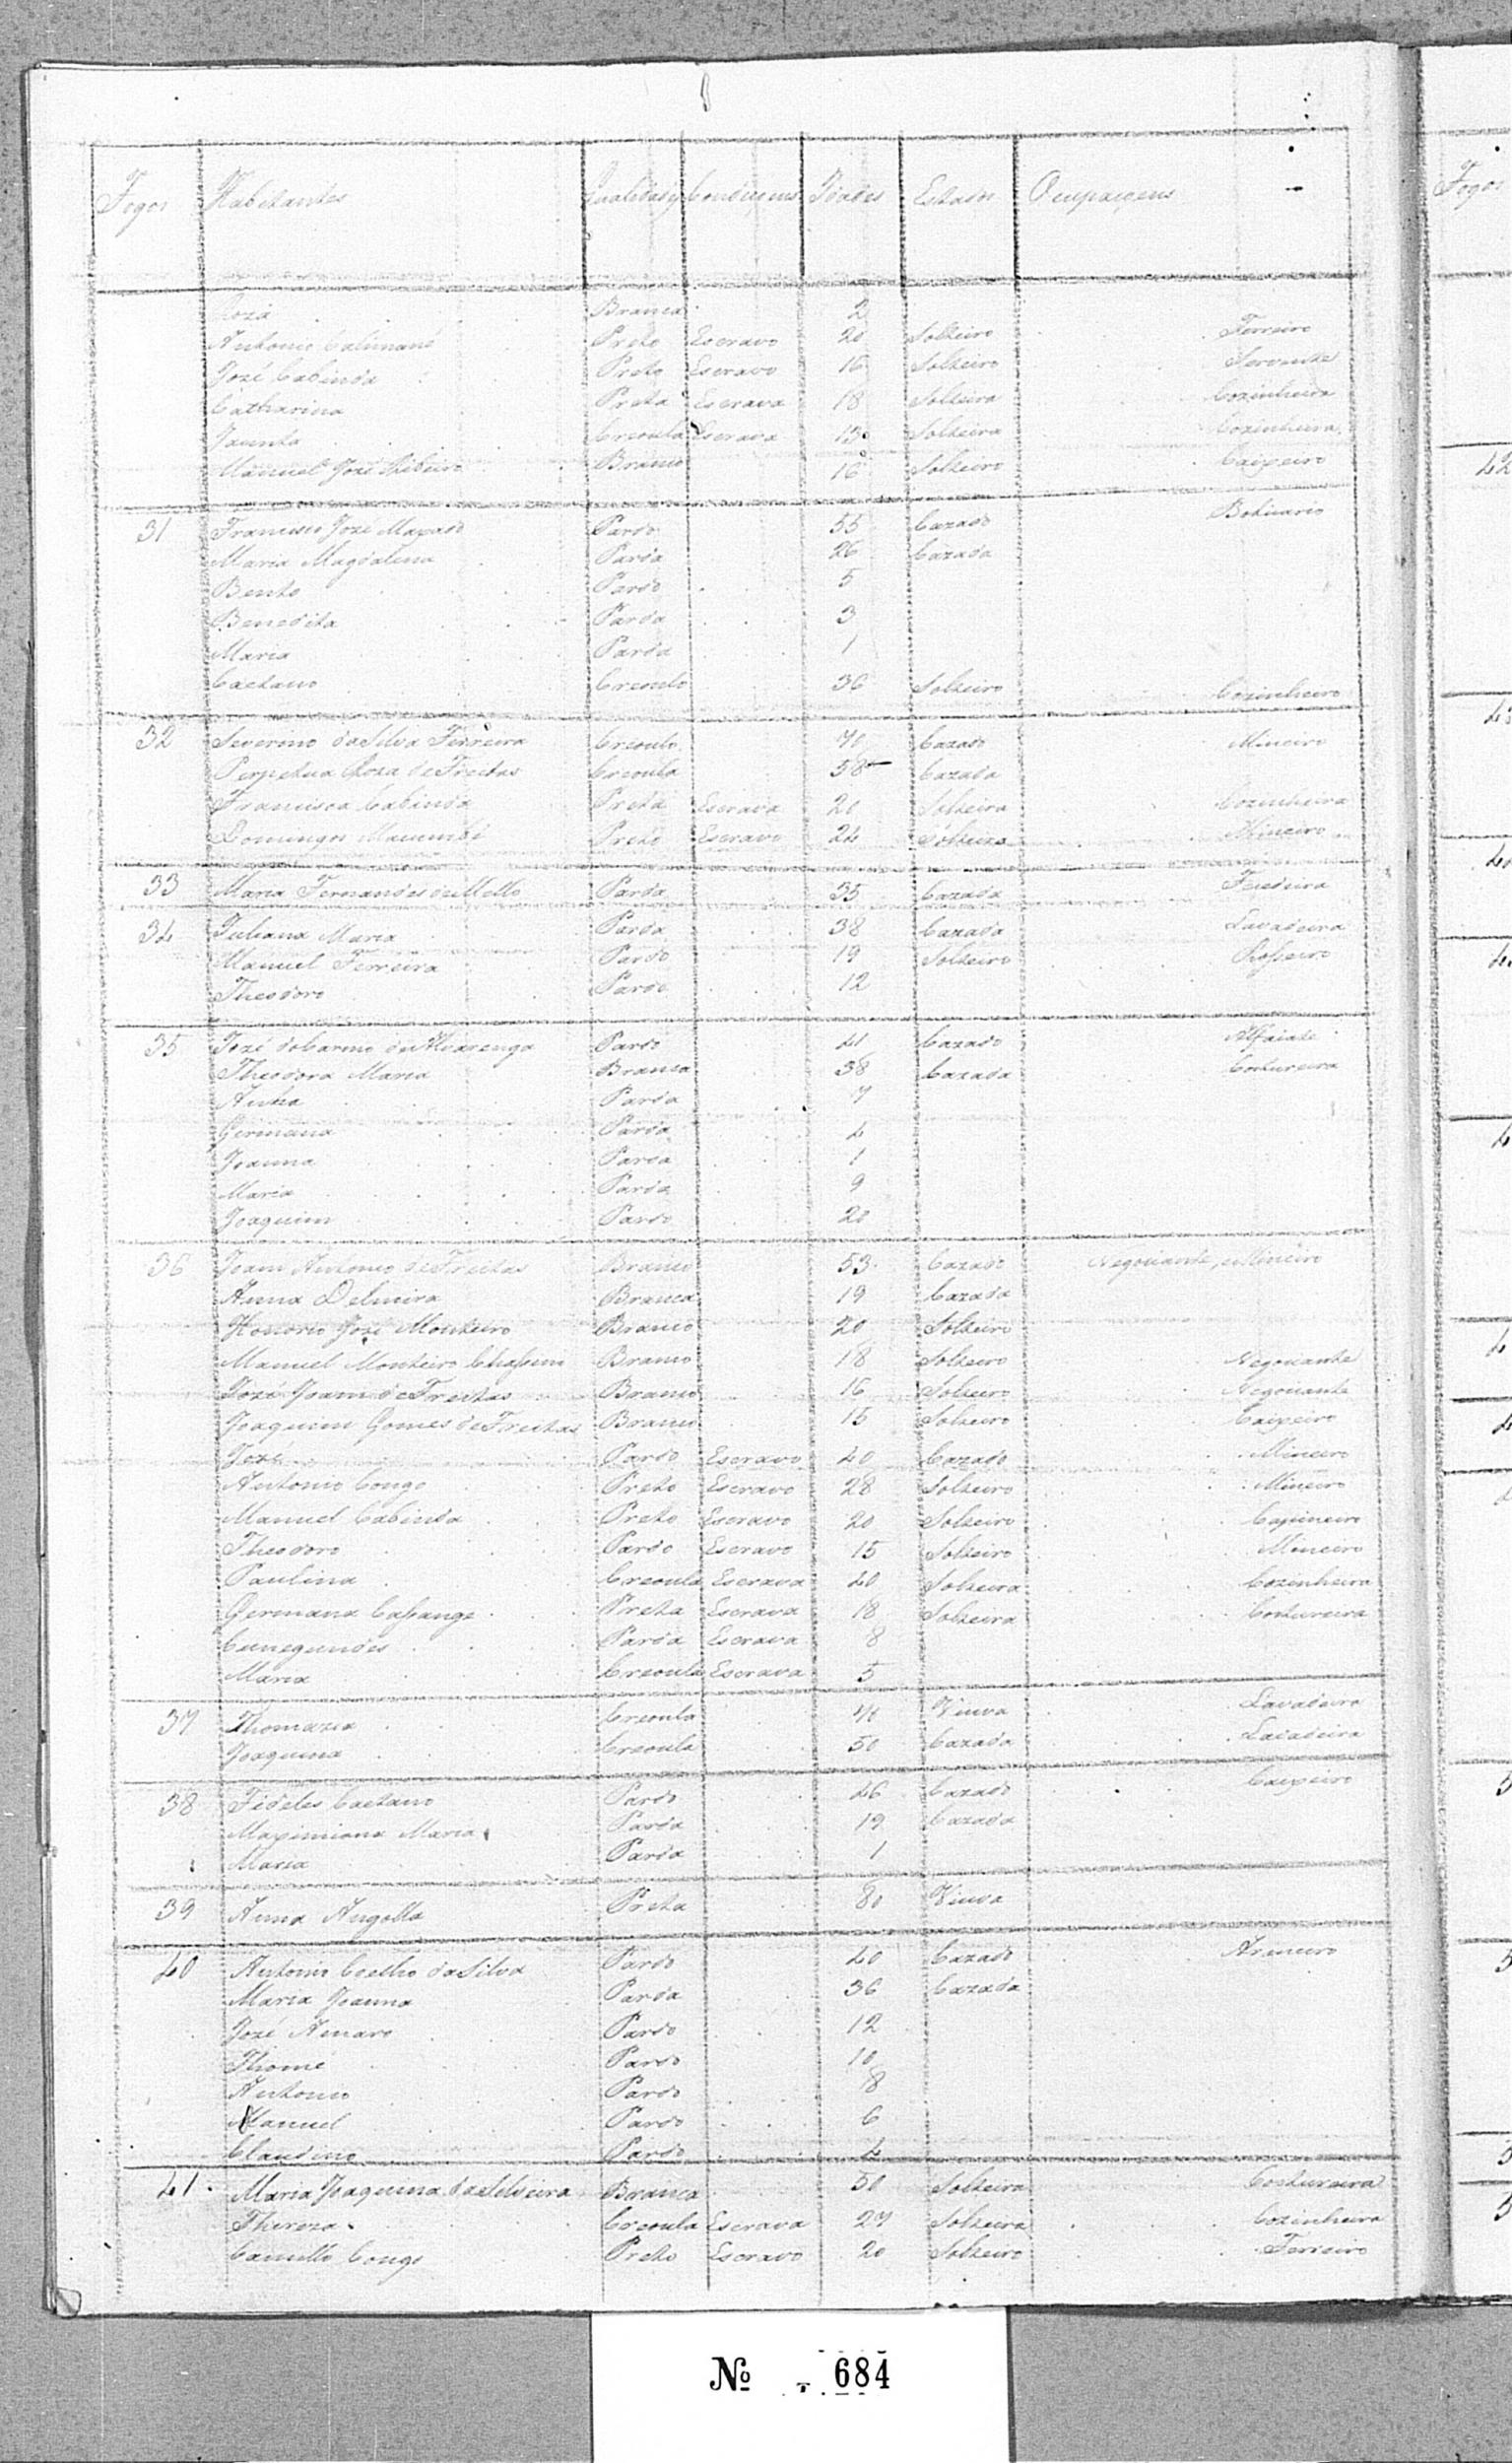 Fogos Habitantes Qualidades Condiçoens Idades Estados Ocupaçoens
Roza Branca 2
Antonio Calimané Preto Escravo 20 Solteiro Ferreiro
Jozé Cabinda Preto Escravo 16 Solteiro Servente
Catharina Preta Escrava 18 Solteira Cozinheira
Jacinta Creoula Escrava 13 Solteira Cozinheira
Manuel Jozé Ribeiro Branco 16 Solteiro Caixeiro
31 Francisco Jozé Maxado Pardo 55 Cazado Boticario
Maria Magdalena Parda 26 Cazada
Bento Pardo 5
Benedita Parda 3
Maria Parda 1
Caetano Creoulo 36 Solteiro Cozinheiro
32 Severino da Silva Ferreira Creoulo 70 Cazado Mineiro
Perpetua Roza de Freitas Creoula 58 Cazada
Francisca Cabinda Preta Escrava 20 Solteira Cozinheira
Domingos Macumbi Preto Escravo 24 Solteiro Mineiro
33 Maria Fernandes de Mello Parda 35 Cazada Fiadeira
34 Juliana Maria Parda 38 Cazada Lavadeira
Manuel Ferreira Pardo 19 Solteiro Rosseiro
Theodoro Pardo 12
35 Jozé do Carmo de Alvarenga Pardo 41 Cazado Alfaiate
Theodora Maria Branca 38 Cazada Costureira
Anna Parda 7
Germana Parda 4
Joanna Parda 1
Maria Parda 9
Joaquim Pardo 20
36 Joam Antonio de Freitas Branco 53 Cazado Negociante, e Mineiro
Anna Delmira Branca 19 Cazada
Honorio Jozé Monteiro Branco 20 Solteiro
Manuel Monteiro Chassim Branco 18 Solteiro Negociante
Jozé Joam de Freitas Branco 16 Solteiro Negociante
Joaquim Gomes de Freitas Branco 15 Solteiro Caixeiro
Jozé Pardo Escravo 40 Cazado Mineiro
Antonio Congo Preto Escravo 28 Solteiro Mineiro
Manuel Cabinda Preto Escravo 20 Solteiro Capineiro
Theodoro Pardo Escravo 15 Solteiro Mineiro
Paulina Creoula Escrava 40 Solteira Cozinheira
Germana Casange Preta Escrava 18 Solteira Costureira
Cunegundes Parda Escrava 8
Maria Creoula Escrava 5
37 Thomazia Creoula Viuva Lavadeira
Joaquina Creoula 50 Cazada Lavadeira
38 Fideles Caetano Pardo 46 Cazado Caixeiro
Maximiana Maria Parda 19 Cazada
Maria Parda 1
39 Anna Angolla Preta 80 Viuva
40 Antonio Coelho da Silva Pardo 40 Cazado Arueiro
Maria Joanna Parda 36 Cazada
Jozé Amaro Pardo 12
Thomé Pardo 10
Antonio Pardo 8
Manuel Pardo 6
Claudino Pardo 4
41 Maria Joaquina da Silveira Branca 50 Solteira Costureira
Thereza Creoula Escrava 27 Solteira Cozinheira
Camillo Congo Preto Escravo 20 Solteiro Ferreiro
Fogos
42
№ 684